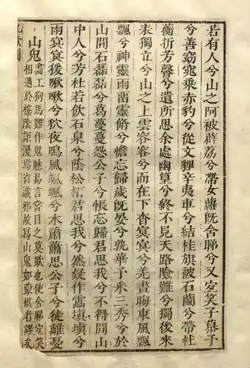 若有人兮山之阿被薜荔兮帶女蘿既含睇兮又宜笑子慕予
兮善窈窕乘赤豹兮從文貍辛夷車兮結桂旗被石蘭兮帶杜
衡折芳馨兮遺所思余處幽篁兮終不見天路險難兮獨後來
表獨立兮山之上雲容容兮而在下杳冥冥兮羌晝晦東風飄
飄兮神靈雨留靈脩兮憺忘歸歲既晏兮孰華予采三秀兮於
山間石磊磊兮葛蔓蔓怨公子兮悵忘歸君思我兮不得閒山
中人兮芳杜若飲石泉兮蔭松柏君思我兮然疑作靁填填兮
雨冥冥猨啾啾兮狖夜鳴風颯颯兮木蕭蕭思公子兮徒離憂
山鬼
工狗馬難作鬼魅易言目之莫覩也使含睇宜笑
相遇於故寫山鬼如蒙者